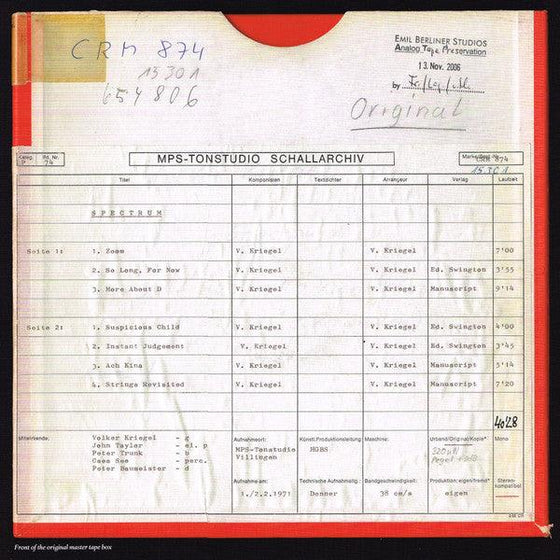 CRM 874
15301
654806
EMIL BERLINER STUDIOS
Analog Tape Preservation
13. Nov. 2006
by
Original
Kateg. lfd. Nr.
P 74
MPS-TONSTUDIO SCHALLARCHIV
CRM 874
15301
Titel Komponisten Textdichter Arrangeur Verlag Laufzeit
SPECTRUM
Seite 1: 1. Zoom V. Kriegel V. Kriegel 7'00
2. So Long, For Now V. Kriegel V. Kriegel Ed. Swington 3'55
3. More About D V. Kriegel V. Kriegel Manuscript 9'14
Seite 2: 1. Suspicious Child V. Kriegel V. Kriegel Ed. Swington 4'00
2. Instant Judgement V. Kriegel V. Kriegel Ed. Swington 3'45
3. Ach Kina V. Kriegel V. Kriegel Manuscript 5'14
4. Strings Revisited V. Kriegel V. Kriegel Manuscript 7'20
40'28
Mitwirkende: Volker Kriegel - g
John Taylor - el. p
Peter Trunk - b
Cees See - perc.
Peter Baumeister - d
Aufnahmeort: Künstl. Produktionsleitung Maschine: Urband/Original/Kopie* Mono
MPS-Tonstudio HGBS
Villingen
Aufnahme am: Technische Aufnahmeltg.: Bandgeschwindigkeit: Produktion: eigen/fremd* Stereo-
1./2.2.1971 Donner 38 cm/s eigen kompatibel
Front of the original master tape box